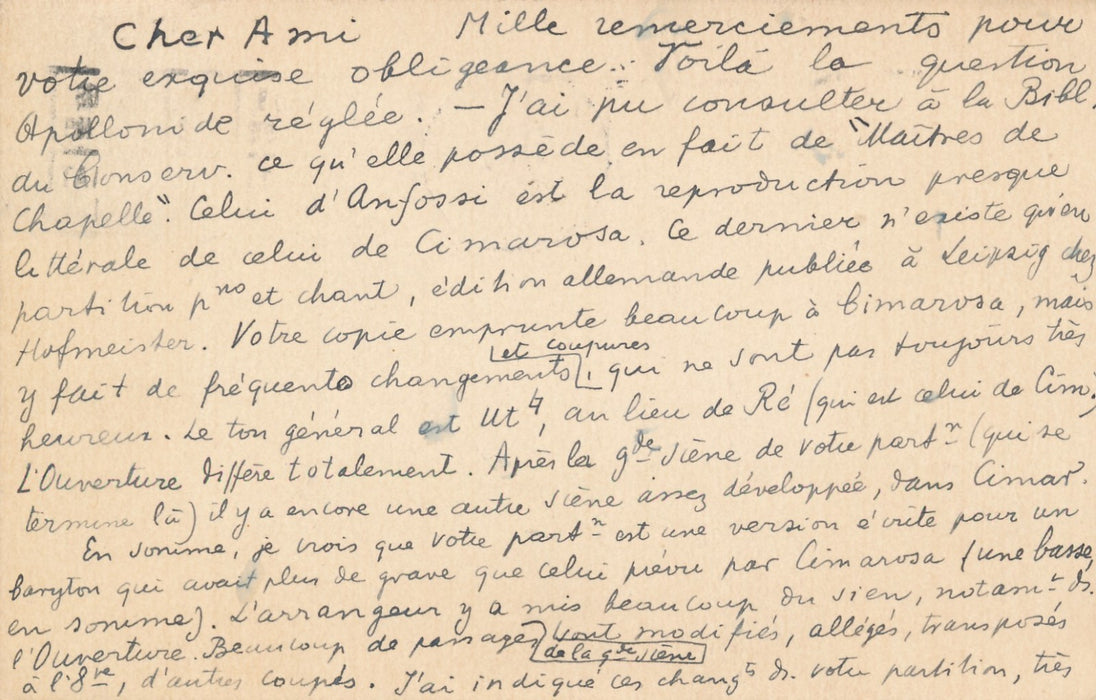 Cher Ami Mille remerciements pour
votre exquise obligeance. Voilà la question
Apollonide réglée. — J'ai pu consulter à la Bibl.
du Conserv. ce qu'elle possède en fait de "Maîtres de
Chapelle". Celui d'Anfossi est la reproduction presque
littérale de celui de Cimarosa. Ce dernier n'existe qu'en
partition pno et chant, édition allemande publiée à Leipzig chez
Hofmeister. Votre copie emprunte beaucoup à Cimarosa, mais
et coupures
y fait de fréquents changements, qui ne sont pas toujours très
heureux. Le ton général est Ut ♮, au lieu de Ré (qui est celui de Cim.)
L'Ouverture diffère totalement. Après la gde scène de votre partn (qui se
termine là) il y a encore une autre scène assez développée, dans Cimar.
En somme, je crois que votre partn est une version écrite pour un
baryton qui avait plus de grave que celui prévu par Cimarosa (une basse,
en somme). L'arrangeur y a mis beaucoup du sien, notamt ds.
l'Ouverture. Beaucoup de passages sont modifiés, allégés, transposés
de la gde scène
à l'8ve, d'autres coupés. J'ai indiqué ces changts ds. votre partition, très